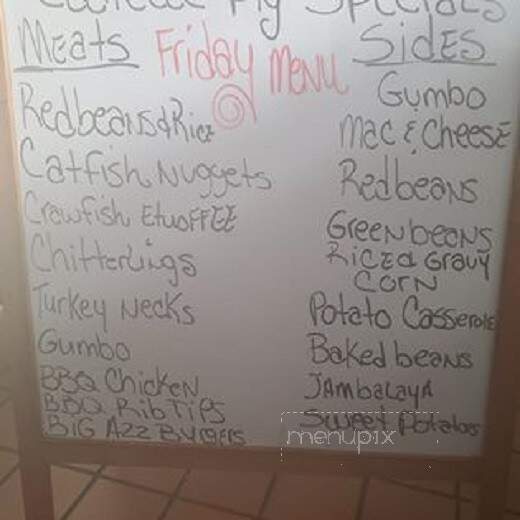 Pig Specials
Meats
Friday Menu
Sides
Redbeans & Rice
Catfish Nuggets
Crawfish EtuoFFEE
Chitterlings
Turkey Necks
Gumbo
BBQ Chicken
BBQ Rib Tips
BIG AZZ Burgers
Gumbo
Mac & Cheese
Redbeans
Greenbeans
Rice & Gravy
Corn
Potato Casserole
Baked beans
JAmbalaya
Sweet Potatos
menupix